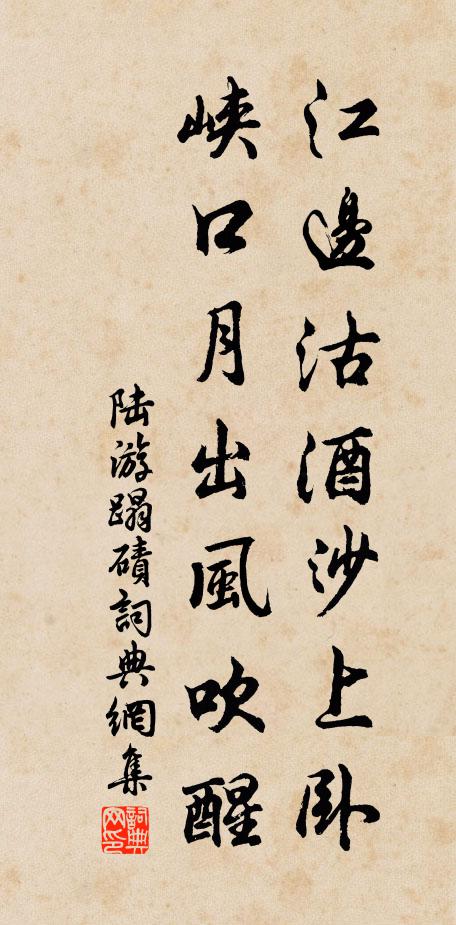 江邊沽酒沙上卧
峽口月出風吹醒
陆游蹋磧詞典網集
詞典網印